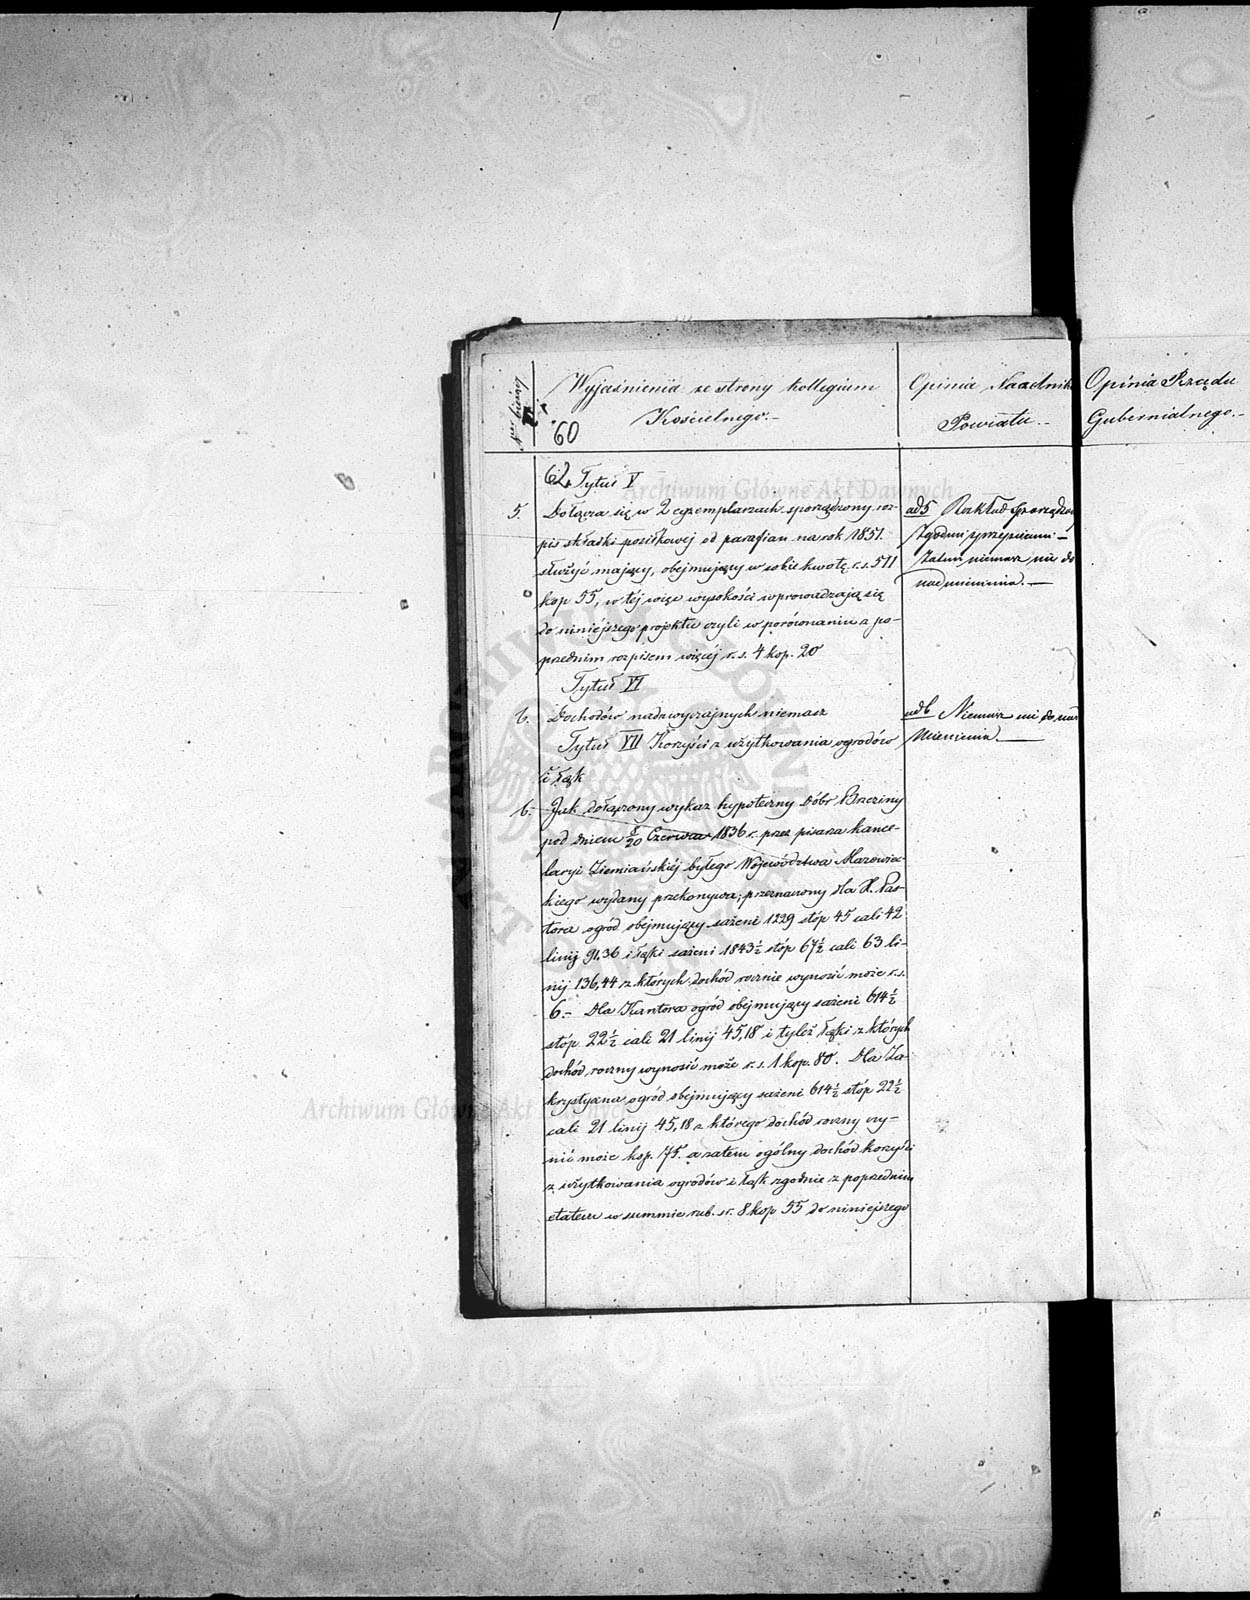 Nr bieżący
Wyjaśnienia ze strony kollegium
Kościelnego.-
Opinia Naczelnika
Powiatu.-
Opinia Rządu
Gubernialnego.-
60
62. Tytuł V
5. Dołącza się w 2 egzemplarzach sporządzony roz-
pis składki posiłkowej od parafian na rok 1851.
służyć mający, obejmujący w sobie kwotę r.s. 511
kop 55, w téj więc wysokości wprowadzają się
do niniejszego projektu czyli w porównaniu z po-
przednim rozpisem więcéj r.s. 4 kop. 20
Tytuł VI
6. Dochodów nadzwyczajnych niemasz
Tytuł VII Korzyści z użytkowania ogrodów
i łąk
6. Jak dołączony wykaz hypoteczny Dóbr Brzeziny
pod dniem 8/20 Czerwca 1836 r. przez pisarza kance-
laryi Ziemiańskiéj byłego Województwa Mazowiec-
kiego wydany przekonywa; przeznaczony dla X. Pas-
tora ogród obejmujący sażeni 1229 stóp 45 cali 42
linij 91,36 i łąki sażeni 1843½ stóp 67½ cali 63 li-
nij 136,44 z których dochód rocznie wynosić może r.s.
6.- Dla Kantora ogród obejmujący sażeni 614½
stóp 22½ cali 21 linij 45,18 i tyleż łąki z których
dochód roczny wynosić może r.s. 1 kop. 80. Dla Za-
krystyana ogród obejmujący sażeni 614½ stóp 22½
cali 21 linij 45,18 z którego dochód roczny czy-
nić może kop. 75. a zatem ogólny dochód korzyści
z użytkowania ogrodów i łąk zgodnie z poprzednim
etatem w summie rub. sr. 8 kop 55 do niniejszego
ad 5 Rozkład sporządzony
zgodnie z przepisami -
zatem niemasz nic do
nadmienienia.-
ad 6 Niemasz nic do nad
mienienia.-
Archiwum Główne Akt Dawnych
Archiwum Główne Akt Dawnych